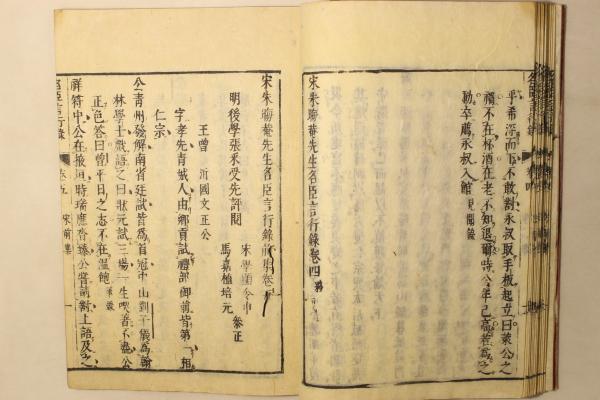 乎希深而下不敢對永叔取手板起立曰萊公之
禍不在杯酒在老不知退爾時公年已高若為之
動卒薦永叔入館 見聞錄
宋朱晦菴先生名臣言行錄卷四
宋朱晦菴先生名臣言行錄前集卷五
明後學張采受先評閱
宋學
馬嘉植培元 參正
王曾 沂國文正公
字孝先青州人由鄉貢試禮部御前皆第一相
仁宗
公青州發解南省廷試皆為首冠中山劉子儀為翰
林學士戲語之曰狀元試三場一生喫著不盡公
正色答曰曾平日之志不在溫飽
祥符中公在掖垣時瑞應沓臻公嘗請對上語及之
名臣言行錄 卷五 宋前集 一